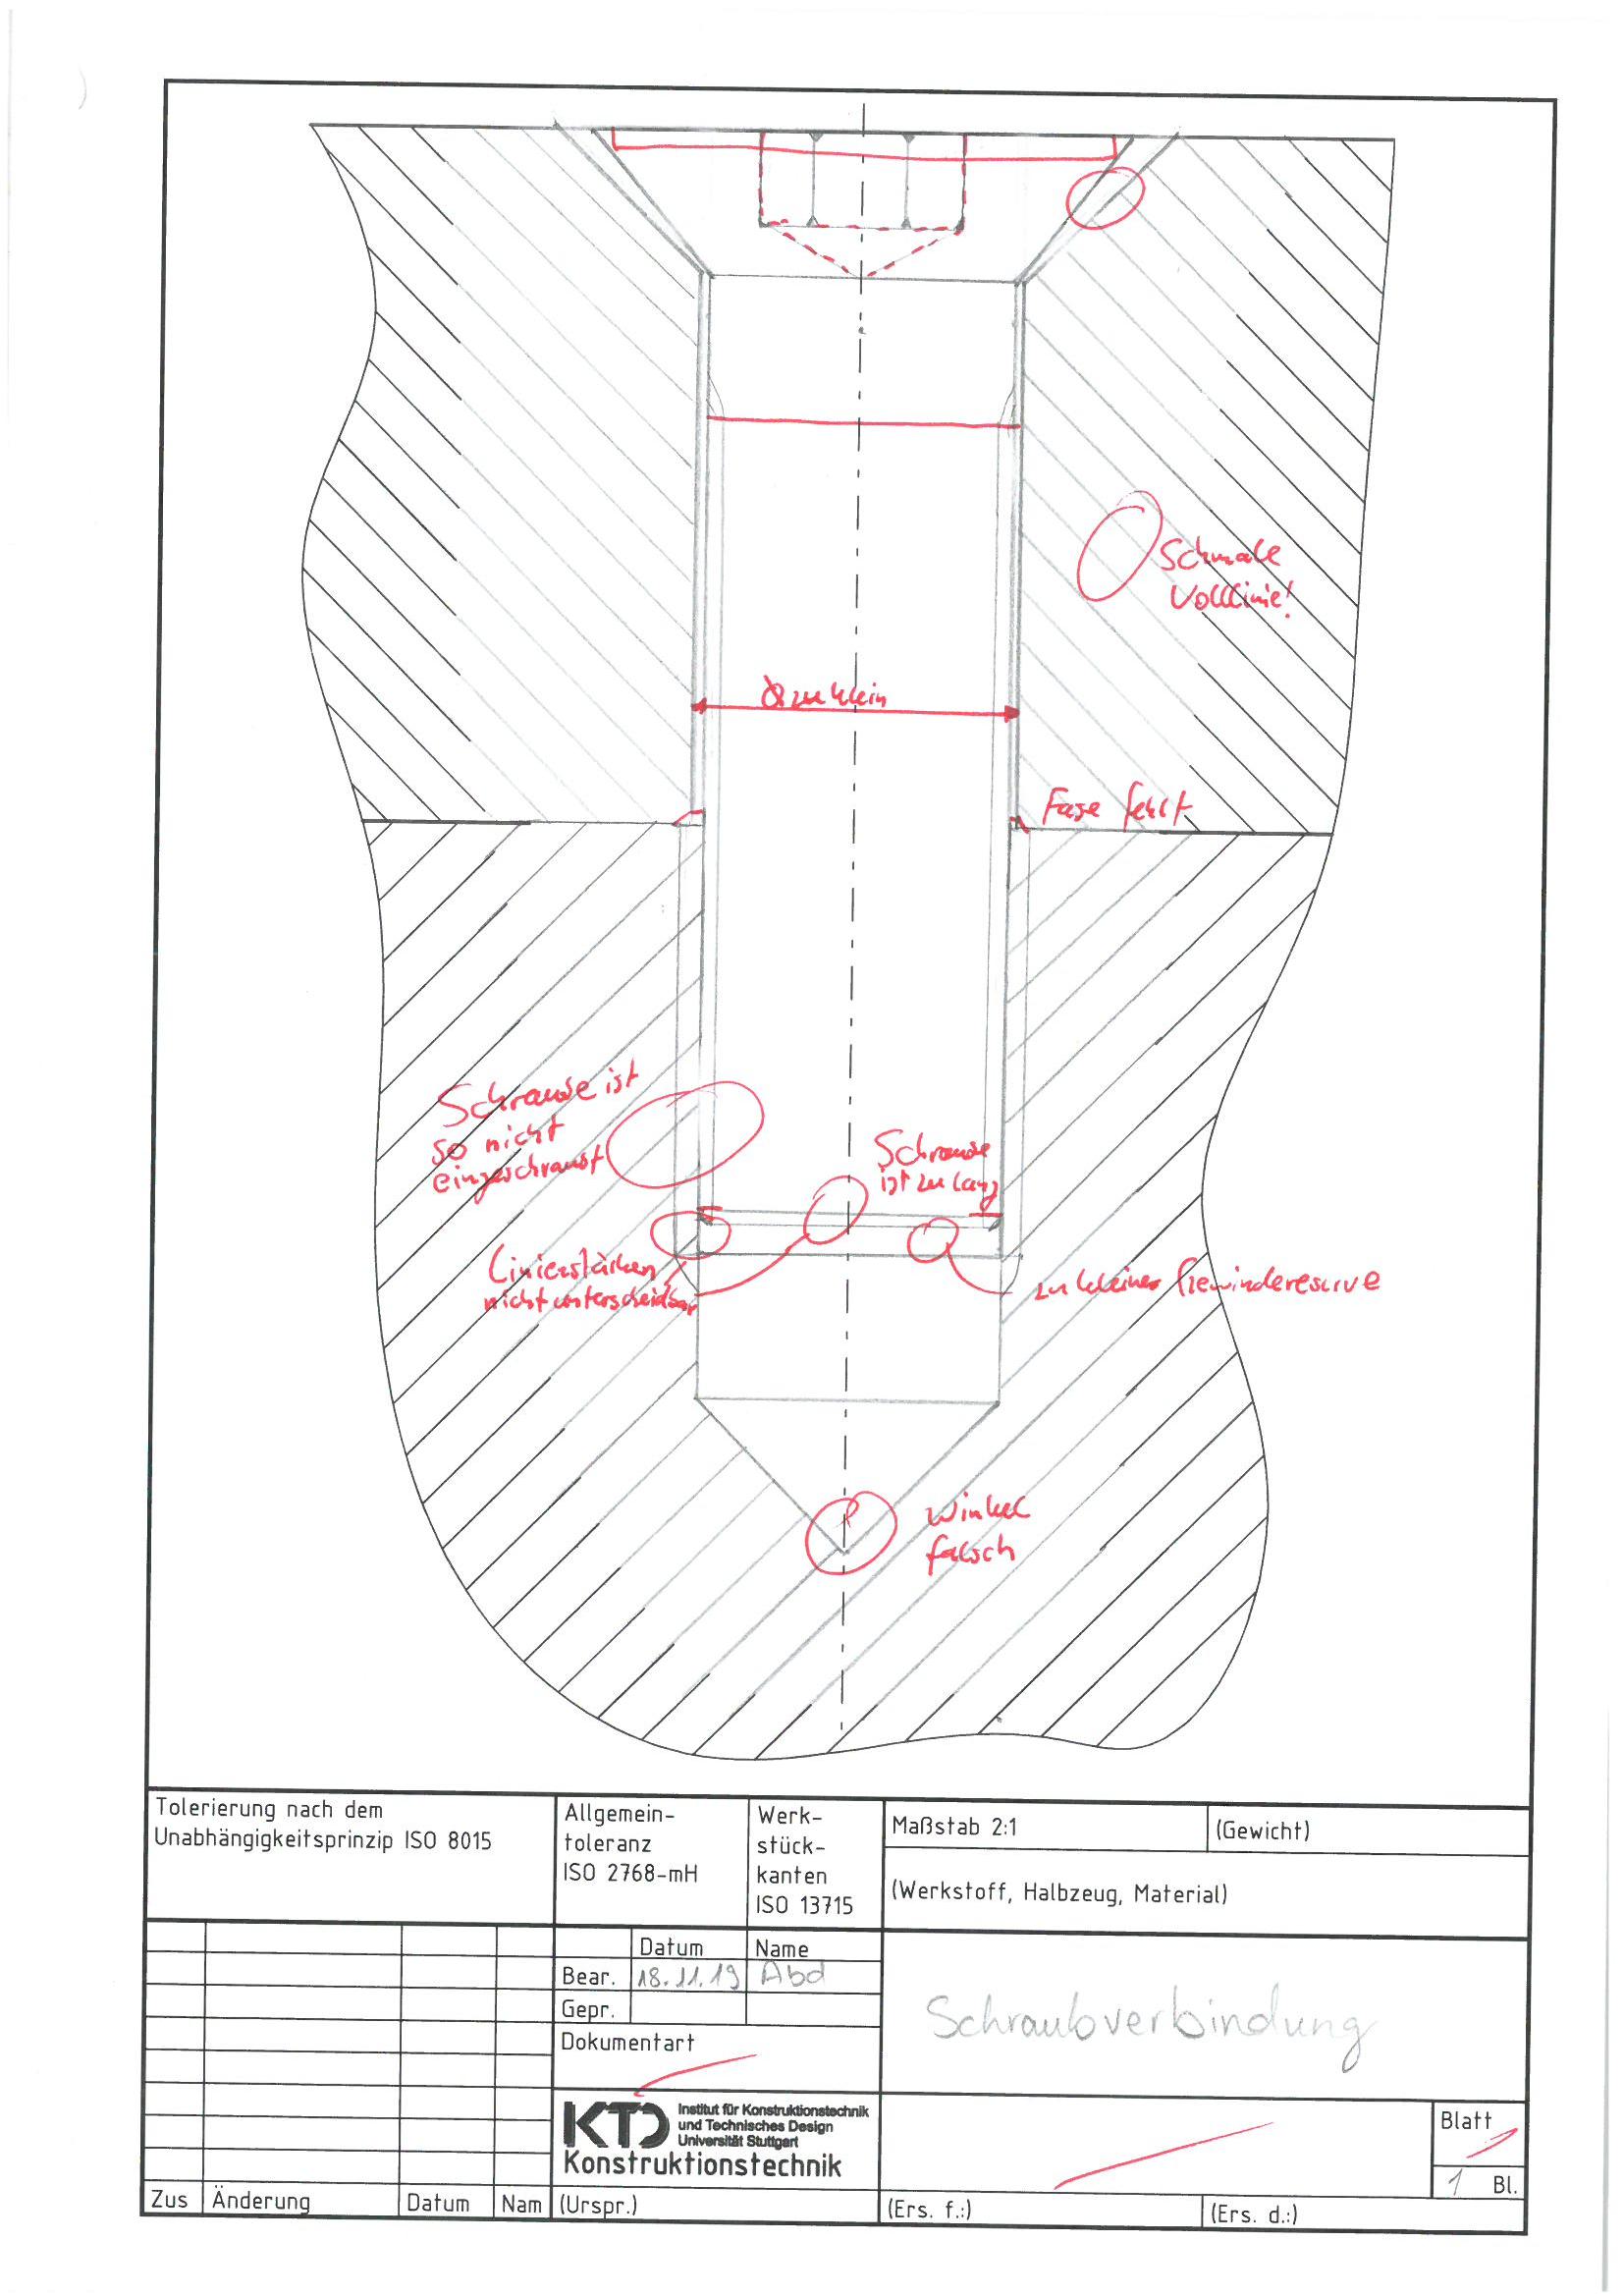 Schmale
Volllinie!
Ø zu klein
Fase fehlt
Schraube ist
so nicht
eingeschraubt
Schraube
ist zu lang
Linienstärken
nicht unterscheidbar
zu kleine Gewindereserve
Winkel
falsch
Tolerierung nach dem
Unabhängigkeitsprinzip ISO 8015
Allgemein-
toleranz
ISO 2768-mH
Werk-
stück-
kanten
ISO 13715
Maßstab 2:1
(Gewicht)
(Werkstoff, Halbzeug, Material)
Datum Name
Bear. 18.11.19 Abd
Gepr.
Dokumentart
Schraubverbindung
KTD Institut für Konstruktionstechnik
und Technisches Design
Universität Stuttgart
Konstruktionstechnik
Blatt
1 Bl.
Zus Änderung Datum Nam (Urspr.) (Ers. f.:) (Ers. d.:)